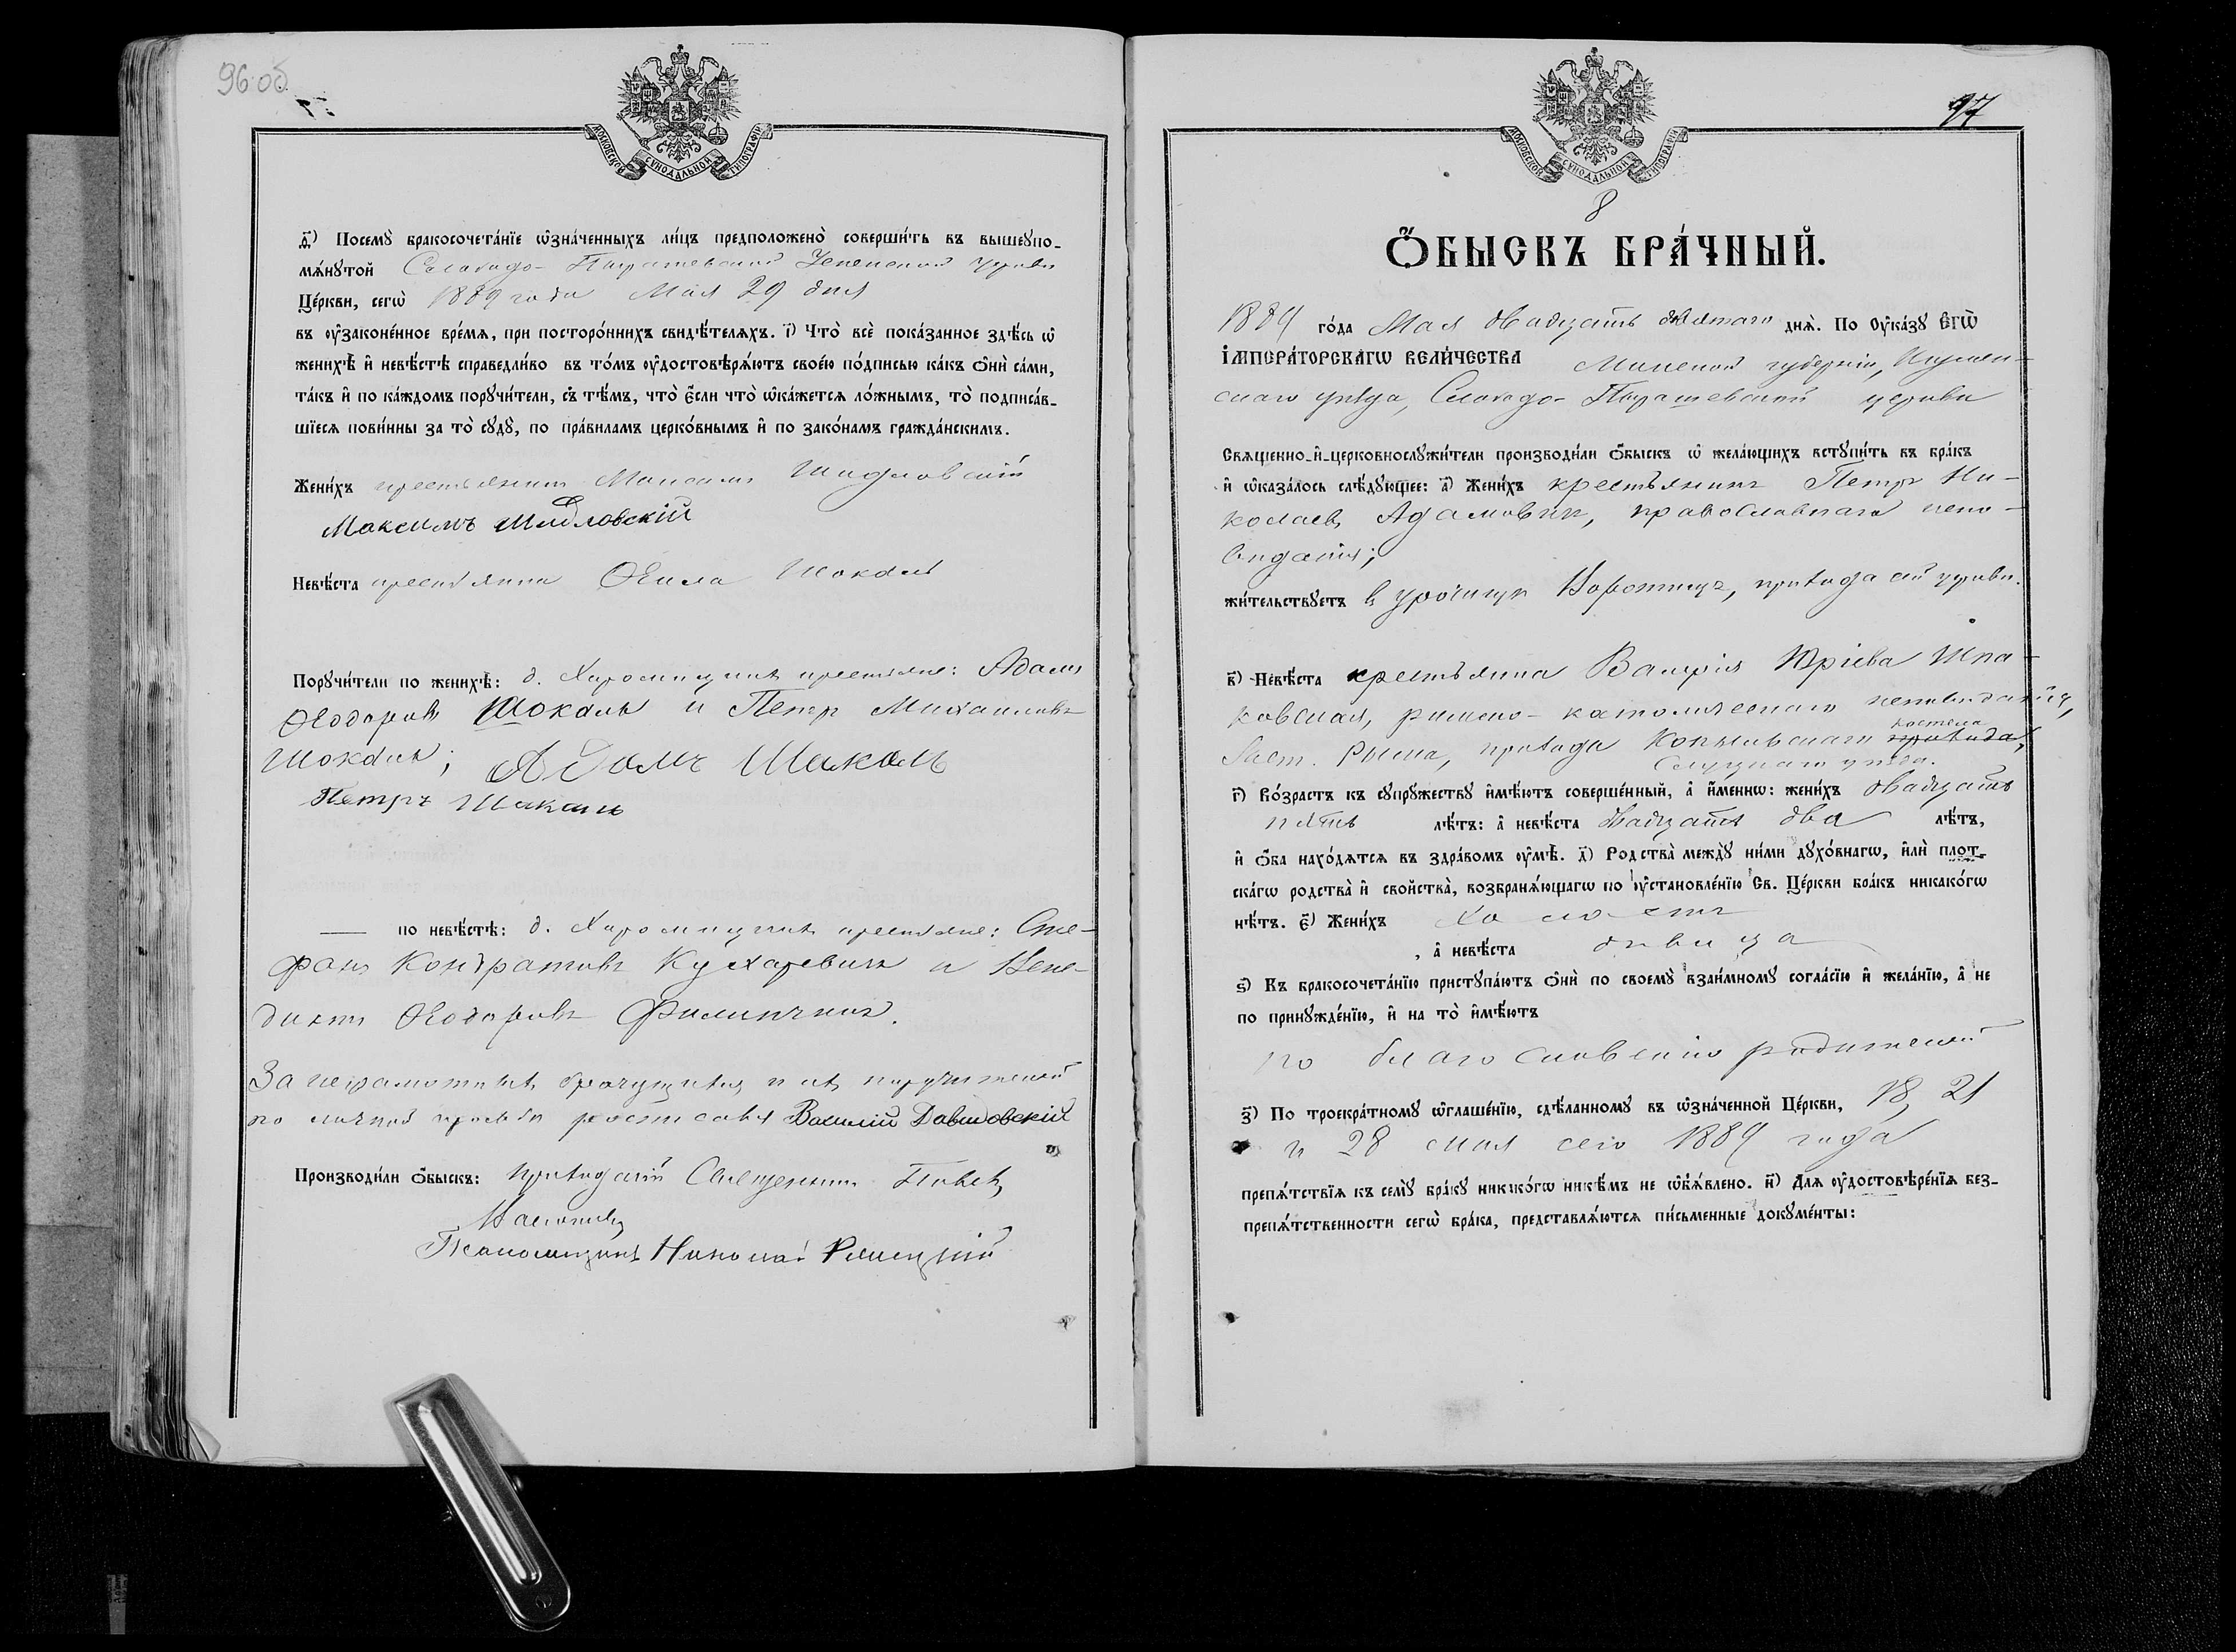 96 об.
МОСКОВСКОЙ СУНОДАЛЬНОЙ ТИПОГРАФІИ
д҃) Посемꙋ бракосочета́нїе ѡ҆зна́ченныхъ ли́цъ предположено̀ соверши́ть въ вышеꙋпо-
мѧ́нꙋтой Слободо- Пырашевской Успенской церкви
Це́ркви, сегѡ̀ 1889 года Мая 29 дня
въ ᲂу҆законе́нное вре́мѧ, при посторо́ннихъ свидѣ́телѧхъ. і҃) Что̀ всѐ пока́занное здѣ́сь ѡ҆
женихѣ̀ и҆ невѣ́стѣ справедли́во въ то́мъ ᲂу҆достовѣрѧ́ютъ свое́ю по́дписью ка́къ ѻ҆нѝ са́ми,
та́къ и҆ по ка́ждомъ порꙋчи́тели, съ тѣ́мъ, что̀ є҆́сли что̀ ѡ҆ка́жетсѧ ло́жнымъ, то̀ подписа́в-
шїесѧ пови́нны за то̀ сꙋдꙋ̀, по пра́виламъ церко́внымъ и҆ по зако́намъ гражда́нскимъ.
Жени́хъ крестьянинъ Максимъ Шидловскій
Максимъ Шидловскій
Невѣ́ста крестьянка Ѳекла Шокаль
Порꙋчи́тели по женихѣ̀: д. крестьяне: Адамъ
Ѳеодоровъ Шокаль и Петръ Михаиловъ
Шокаль; Адамъ Шакаль
Петръ Шакаль
— по невѣ́стѣ: д. крестьяне: Сте-
фанъ Кондратовъ Кухаревичъ и Бене-
диктъ Ѳеодоровъ Филипчикъ.
За неграмотныхъ брачущихся и ихъ поручителей
по личной просьбѣ росписался Василій Давидовскій
Производи́ли ѻ҆́быскъ: приходскій Священникъ Павелъ
Псаломщикъ Николай
97
МОСКОВСКОЙ СУНОДАЛЬНОЙ ТИПОГРАФІИ
8
Ѻ҆́БЫСКЪ БРА́ЧНЫЙ.
1889 го́да Мая двадцать девятаго днѧ̀. По ᲂу҆ка́зꙋ Є҆гѡ̀
І҆МПЕРА́ТОРСКАГѠ ВЕЛИ́ЧЕСТВА Минской губерніи, Игумен-
скаго уѣзда, Слободо- Пырашевской церкви
Свѧщенно-и҆-церковнослꙋжи́тели производи́ли ѻ҆́быскъ ѡ҆ жела́ющихъ вступи́ть въ бра́къ
и҆ ѡ҆каза́лось слѣ́дꙋющее: а҃) Жени́хъ крестьянинъ Петръ Ни-
колаевъ Адамовичъ, православнаго испо-
вѣданія;
жи́тельствꙋетъ въ урочищѣ прихода сей церкви.
в҃) Невѣ́ста крестьянка Валерія Юріева Шпа-
ковская, римско- католическаго исповѣданія,
заст. Рыма, прихода Копыльскаго прихода, костела
Слуцкаго уѣзда.
г҃) Во́зрастъ къ сꙋпрꙋжествꙋ и҆мѣ́ютъ соверше́нный, а҆ и҆́меннѡ: жени́хъ двадцать
пять лѣ́тъ: а҆ невѣ́ста двадцать два лѣ́тъ,
и҆ ѻ҆́ба нахо́дѧтсѧ въ здра́вомъ ᲂу҆мѣ̀. д҃) Родства̀ междꙋ̀ ни́ми дꙋхо́внагѡ, и҆лѝ плот-
ска́гѡ родства̀ и҆ свойства̀, возбранѧ́ющагѡ по ᲂу҆становле́нїю Св. Це́ркви бра́къ никако́гѡ
нѣ́тъ. є҃) Жени́хъ холостъ
, а҆ невѣ́ста дѣвица
ѕ҃) Къ бракосочета́нїю пристꙋпа́ютъ ѻ҆нѝ по своемꙋ̀ взаи́мномꙋ согла́сїю и҆ жела́нїю, а҆ не
по принꙋжде́нїю, и҆ на то̀ и҆мѣ́ютъ
по благословенію родителей
з҃) По троекра́тномꙋ ѡ҆глаше́нїю, сдѣ́ланномꙋ въ ѡ҆зна́ченной Це́ркви, 18, 21
и 28 мая сего 1889 года
препѧ́тствїѧ къ семꙋ̀ бра́кꙋ никако́гѡ никѣ́мъ не ѡ҆б̾ѧ́влено. и҃) Длѧ ᲂу҆достовѣре́нїѧ без-
препѧ́тственности сегѡ̀ бра́ка, представлѧ́ютсѧ пи́сьменные докꙋме́нты: